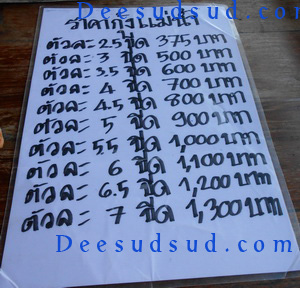 Deesudsud.com
ราคากุ้งแม่น้ำ
ตัวละ 2.5 ขีด 375 บาท
ตัวละ 3 ขีด 500 บาท
ตัวละ 3.5 ขีด 600 บาท
ตัวละ 4 ขีด 700 บาท
ตัวละ 4.5 ขีด 800 บาท
ตัวละ 5 ขีด 900 บาท
ตัวละ 5.5 ขีด 1,000 บาท
ตัวละ 6 ขีด 1,100 บาท
ตัวละ 6.5 ขีด 1,200 บาท
ตัวละ 7 ขีด 1,300 บาท
Deesudsud.com